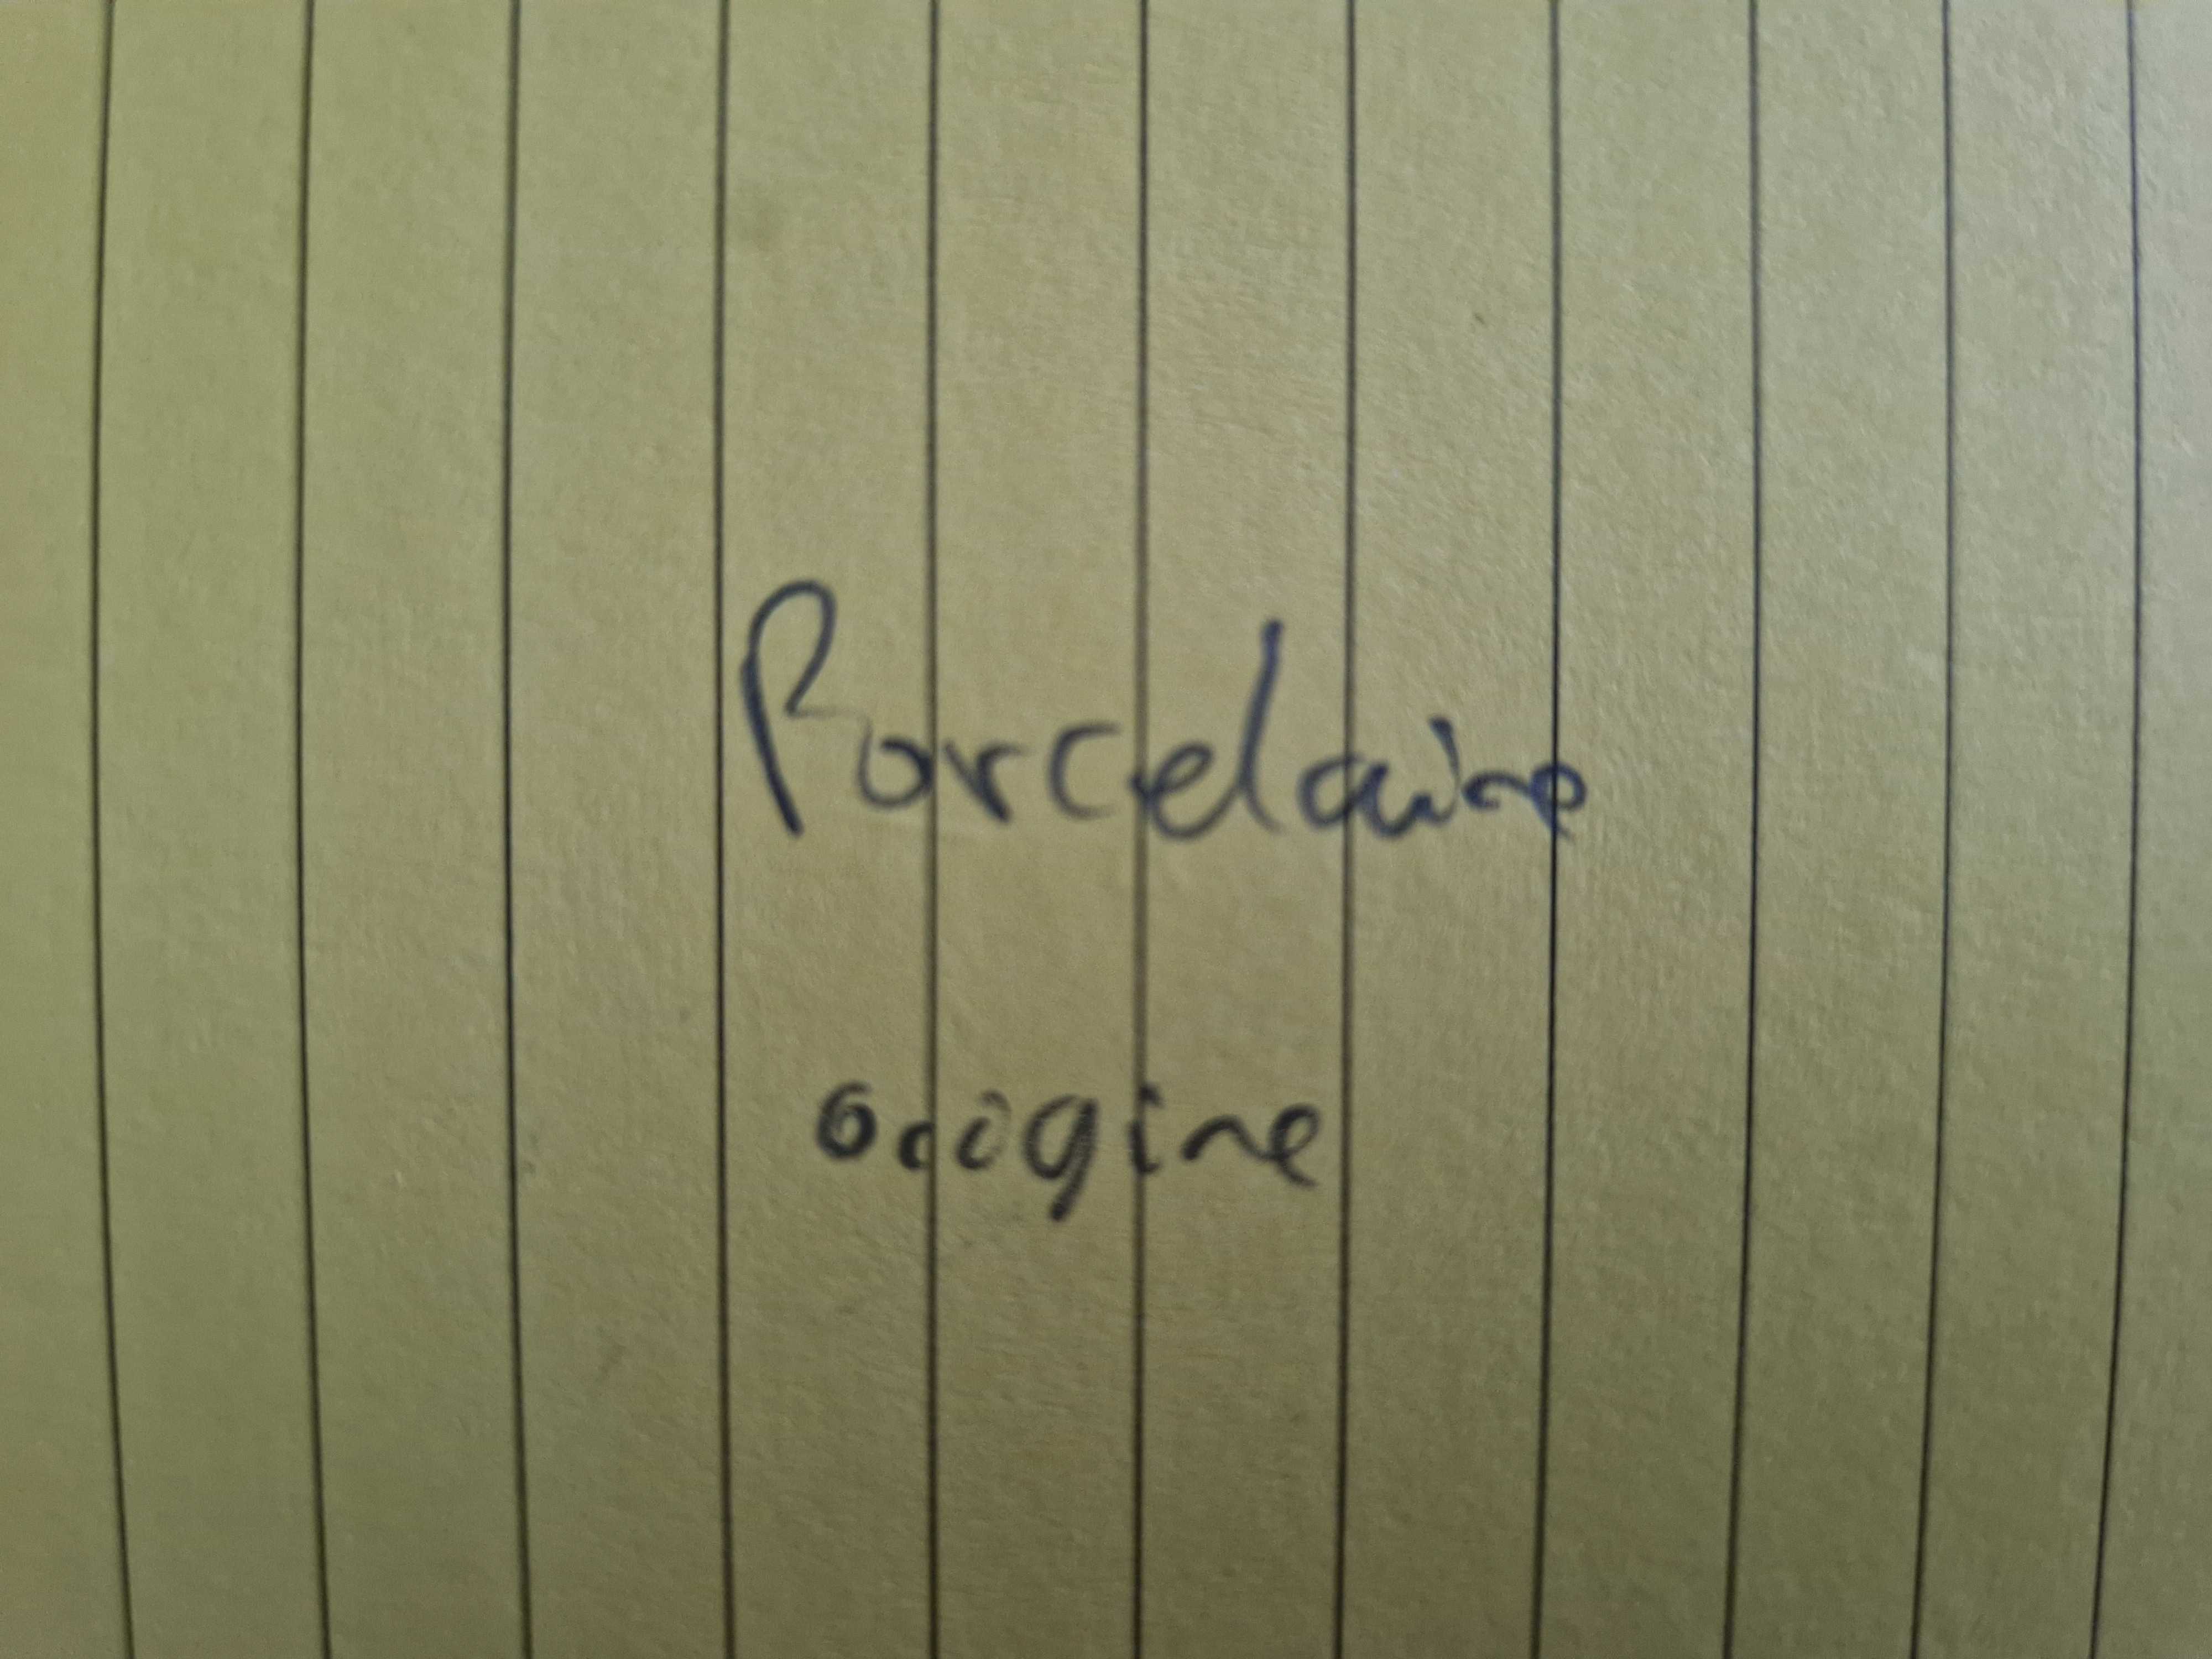 Porcelaine
origine